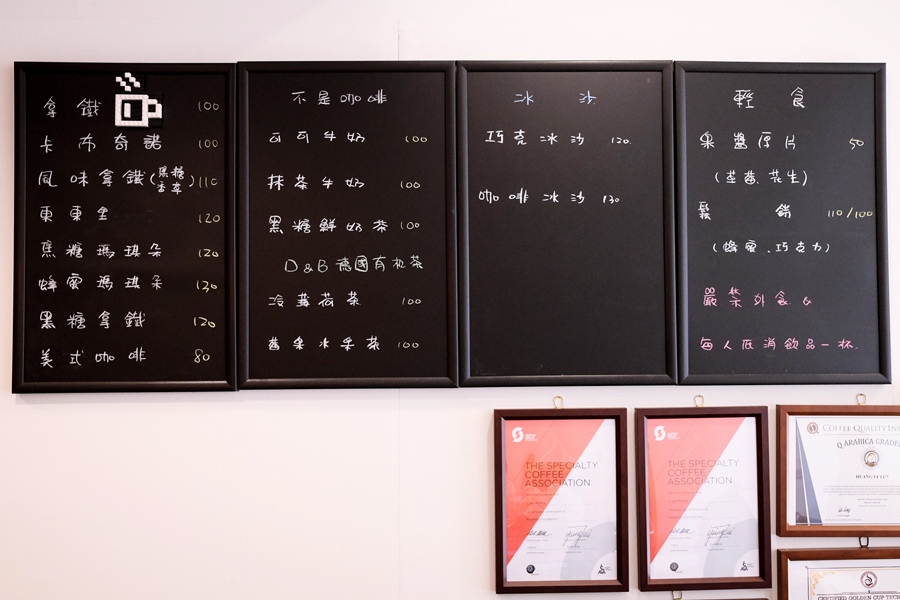 拿鐵 100
卡布奇諾 100
風味拿鐵(焦糖 香草)110
東東 120
焦糖瑪琪朵 120
蜂蜜瑪琪朵 130
黑糖拿鐵 120
美式咖啡 80
不是咖啡
可可牛奶 100
抹茶牛奶 100
黑糖鮮奶茶 100
D&B德國有机茶
冷薄荷茶 100
蘋果水果茶 100
冰沙
巧克冰沙 120.
咖啡冰沙 130
輕食
果醬厚片 50
(花生)
鬆餅 110/100
(蜂蜜、巧克力)
嚴禁外食
每人低消飲品一杯.
THE SPECIALTY
COFFEE
ASSOCIATION
THE SPECIALTY
COFFEE
ASSOCIATION
COFFEE QUALITY INS
Q ARABICA GRADE
CERTIFIED GOLDEN CUP TECH